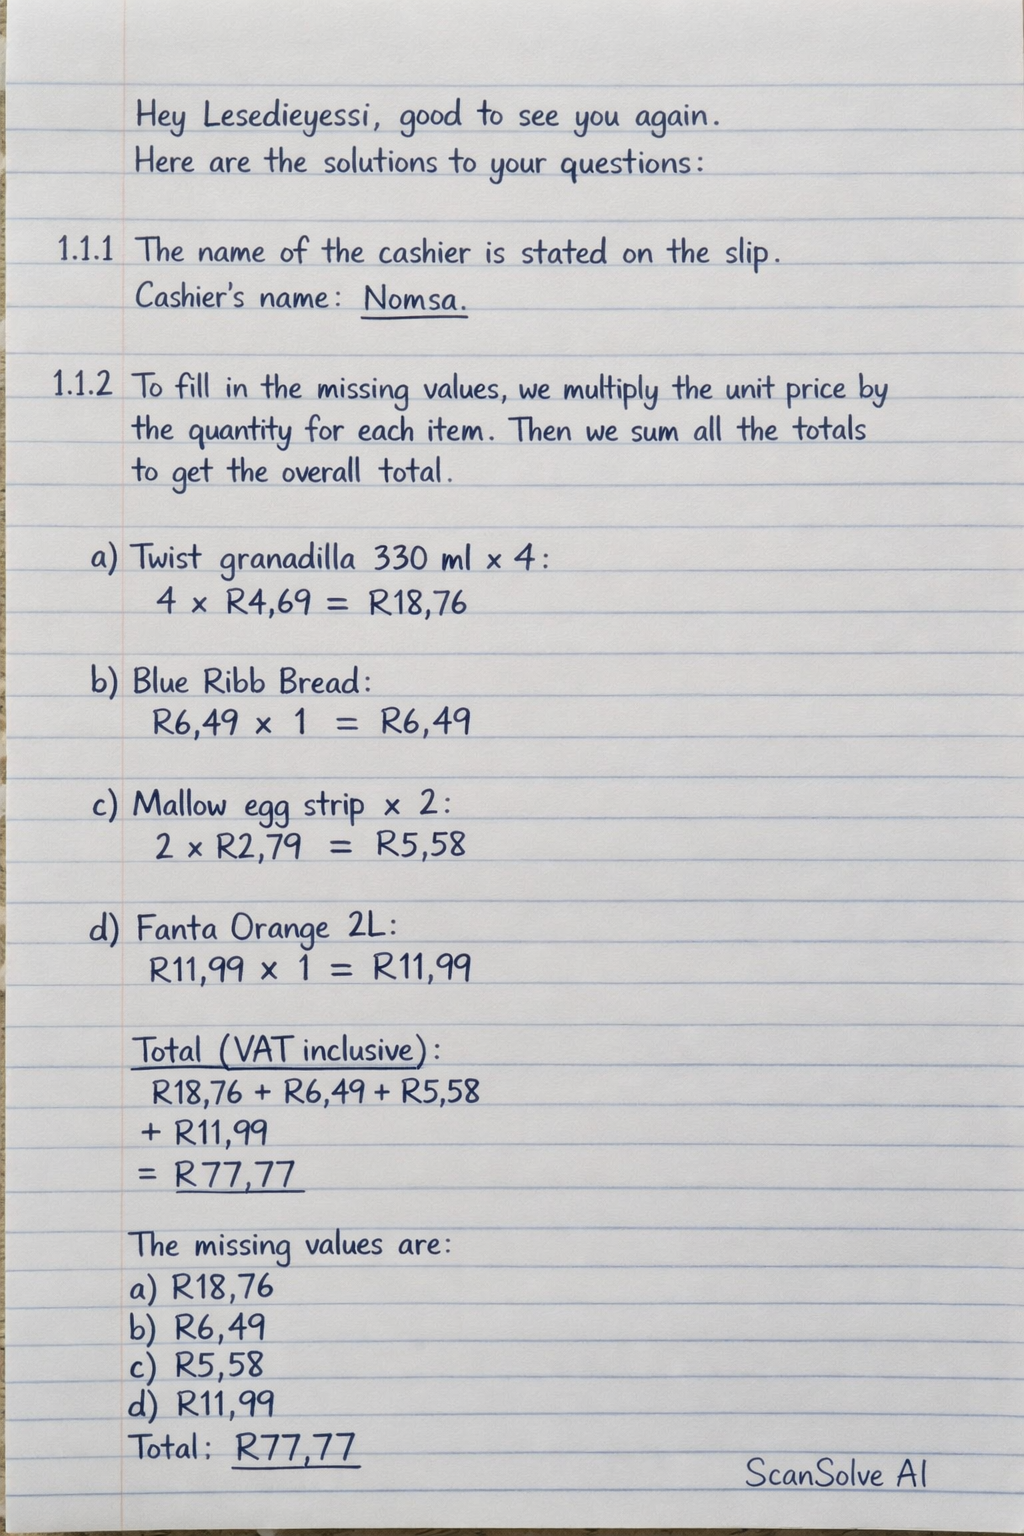 Hey Lesedieyessi, good to see you again.
Here are the solutions to your questions:
1.1.1 The name of the cashier is stated on the slip.
Cashier's name: Nomsa.
1.1.2 To fill in the missing values, we multiply the unit price by
the quantity for each item. Then we sum all the totals
to get the overall total.
a) Twist granadilla 330 ml x 4:
4 x R4,69 = R18,76
b) Blue Ribb Bread:
R6,49 x 1 = R6,49
c) Mallow egg strip x 2:
2 x R2,79 = R5,58
d) Fanta Orange 2L:
R11,99 x 1 = R11,99
Total (VAT inclusive):
R18,76 + R6,49 + R5,58
+ R11,99
= R77,77
The missing values are:
a) R18,76
b) R6,49
c) R5,58
d) R11,99
Total: R77,77
ScanSolve AI